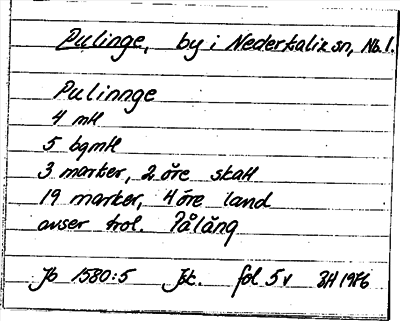 Pulinge, by i Nederkalix sn, Nb l.
Pulinnge
4 mtl
5 bgmtl
3 marker, 2 öre skatt
19 marker, 4 öre land
avser trol. Påläng
Jb 1580:5 fol 5 v BH 1976